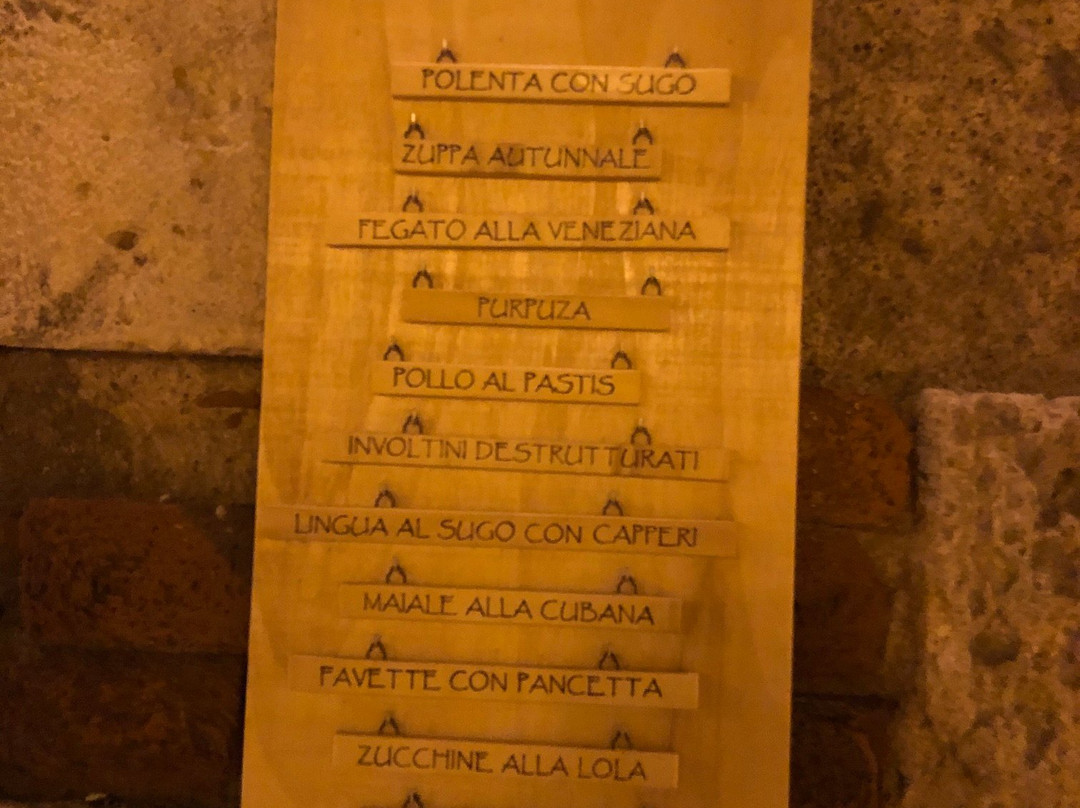 POLENTA CON SUGO
ZUPPA AUTUNNALE
FEGATO ALLA VENEZIANA
PURPUZA
POLLO AL PASTIS
INVOLTINI DESTRUTTURATI
LINGUA AL SUGO CON CAPPERI
MAIALE ALLA CUBANA
FAVETTE CON PANCETTA
ZUCCHINE ALLA LOLA